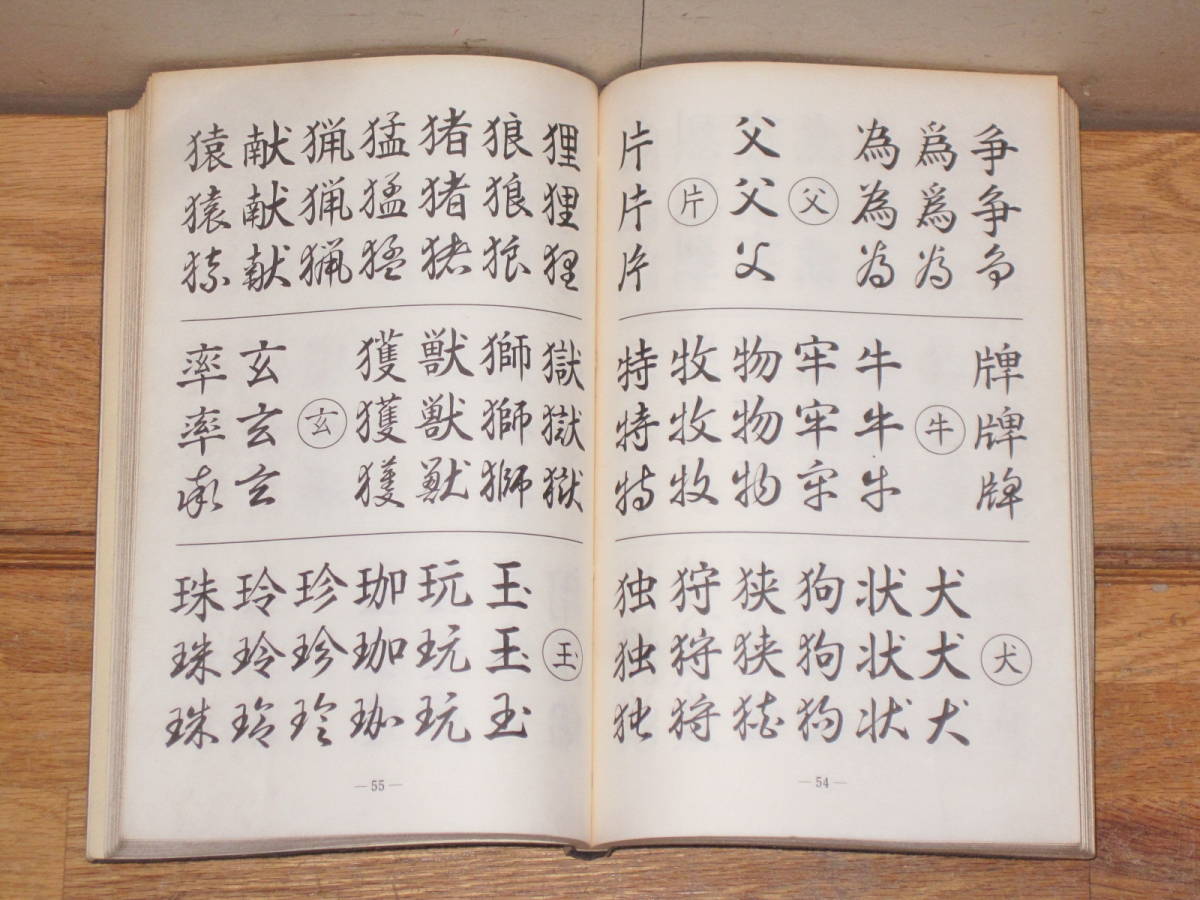 争争争
爲爲為
為為為
父
父父父
片
片片片
牌牌牌
牛
牛牛牛
牢牢牢
物物物
牧牧牧
特特特
犬
犬犬犬
状状状
狗狗狗
狭狭狭
狩狩狩
独独独
—54—
狸狸狸
狼狼狼
猪猪猪
猛猛猛
猟猟猟
献献献
猿猿猿
獄獄獄
獅獅獅
獣獣獣
獲獲獲
玄
玄玄玄
率率率
玉
玉玉玉
玩玩玩
珈珈珈
珍珍珍
玲玲玲
珠珠珠
—55—